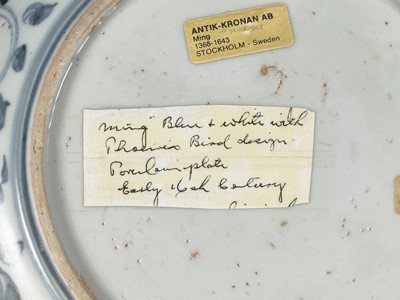 ANTIK-KRONAN AB
Ming
1368-1643
STOCKHOLM - Sweden
"Ming" Blue + white with
Phoenix Bird design.
Porcelain plate
Early 16th Century